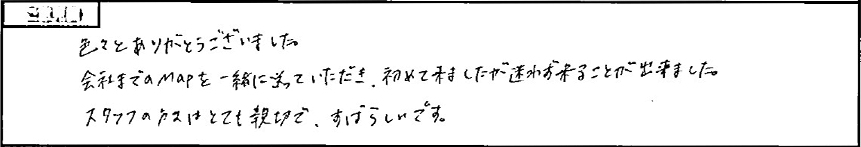 色々とありがとうございました。
会社までのMapを一緒に送っていただき、初めて来ましたが迷わず来ることが出来ました。
スタッフの方々はとても親切で、すばらしいです。